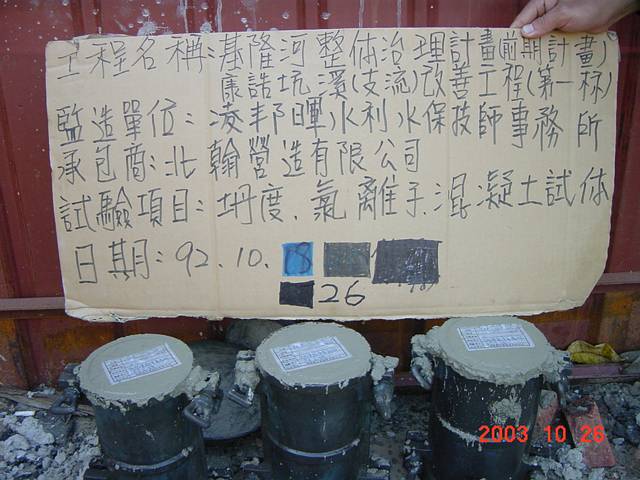 工程名稱:基隆河整体治理計畫(前期計畫)
康誥坑溪(支流)改善工程(第一标)
監造單位:凌邦暉水利水保技師事務所
承包商:北翰營造有限公司
試驗項目:坍度.氯離子.混凝土試体
日期:92.10.
26
2003 10 26